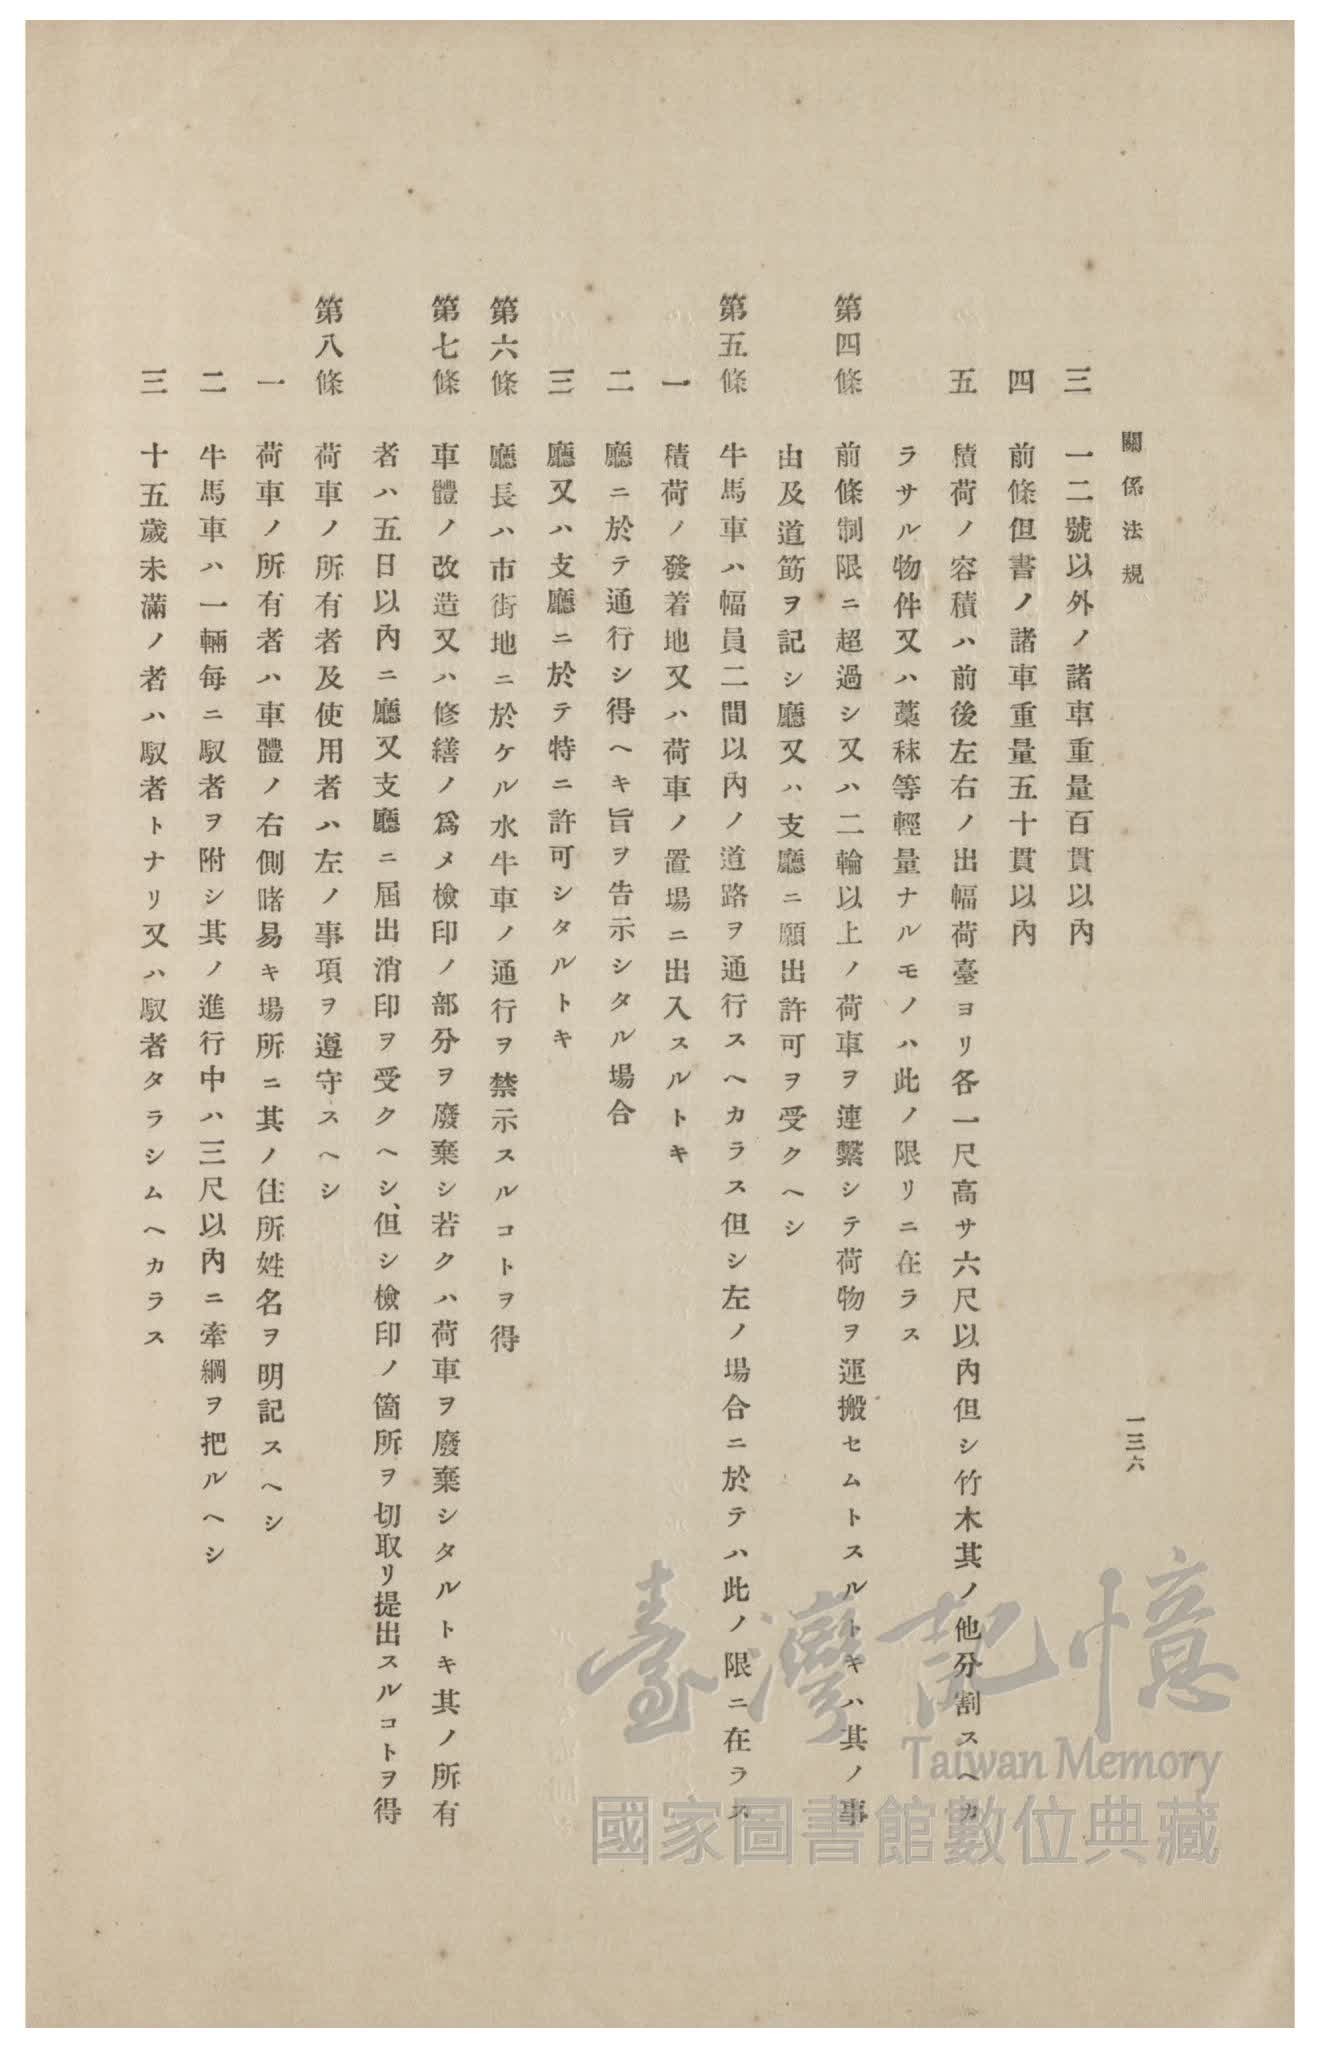 關係法規
一三六
三　一二號以外ノ諸車重量百貫以內
四　前條但書ノ諸車重量五十貫以內
五　積荷ノ容積ハ前後左右ノ出幅荷臺ヨリ各一尺高サ六尺以內但シ竹木其ノ他分割スヘカ
ラサル物件又ハ藁秣等輕量ナルモノハ此ノ限リニ在ラス
第四條　前條制限ニ超過シ又ハ二輪以上ノ荷車ヲ連繫シテ荷物ヲ運搬セムトスルトキハ其ノ事
由及道筋ヲ記シ廳又ハ支廳ニ願出許可ヲ受クヘシ
第五條　牛馬車ハ幅員二間以內ノ道路ヲ通行スヘカラス但シ左ノ場合ニ於テハ此ノ限ニ在ラス
一　積荷ノ發着地又ハ荷車ノ置場ニ出入スルトキ
二　廳ニ於テ通行シ得ヘキ旨ヲ告示シタル場合
三　廳又ハ支廳ニ於テ特ニ許可シタルトキ
第六條　廳長ハ市街地ニ於ケル水牛車ノ通行ヲ禁示スルコトヲ得
第七條　車體ノ改造又ハ修繕ノ爲メ檢印ノ部分ヲ廢棄シ若クハ荷車ヲ廢棄シタルトキ其ノ所有
者ハ五日以內ニ廳又支廳ニ屆出消印ヲ受クヘシ、但シ檢印ノ箇所ヲ切取リ提出スルコトヲ得
第八條　荷車ノ所有者及使用者ハ左ノ事項ヲ遵守スヘシ
一　荷車ノ所有者ハ車體ノ右側睹易キ場所ニ其ノ住所姓名ヲ明記スヘシ
二　牛馬車ハ一輛每ニ馭者ヲ附シ其ノ進行中ハ三尺以內ニ牽綱ヲ把ルヘシ
三　十五歲未滿ノ者ハ馭者トナリ又ハ馭者タラシムヘカラス
臺灣記憶
Taiwan Memory
國家圖書館數位典藏